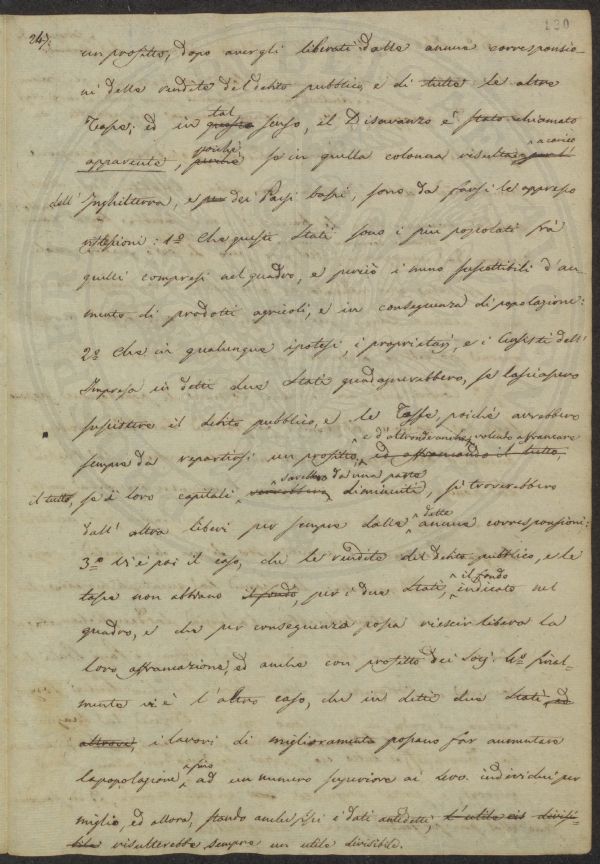 24):
130
un profitto, dopo avergli liberati dalle annue corresponsio-
ni delle rendite del debito pubblico, e di tutte le altre
Tasse; ed in questo tal senso, il Disavanzo è stato chiamato
apparente, perchè poichè se in quella colonna risulta, a carico
dell' Inghilterra, e per dei Paesi bassi, sono da farsi le appresso
riflessioni: 1º Che questi Stati sono i più popolati frà
quelli compresi nel quadro, e perciò i meno suscettibili d'au-
mento di prodotti agricoli, e in conseguenza di popolazione:
2º Che in qualunque ipotesi, i proprietarj, e i dell'
Impresa in detti due Stati guadagnerebbero, se lasciassero
sussistere il debito pubblico, e le Tasse, poichè avrebbero
sempre da repartirsi un profitto, ed affrancando il tutto, e d'altronde anche volendo affrancare
il tutto, se i loro capitali, verrebbero sarebbero da una parte diminuiti, si troverebbero
dall' altra liberi per sempre dalle dette annue corresponsioni:
3º Vi è poi il caso, che le rendite del debito pubblico, e le
tasse non abbiano il fondo, per i due Stati, il fondo indicato nel
quadro, e che per conseguenza possa riescir libera la
loro affrancazione, ed anche con profitto dei Socj: 4º final-
mente vi è l'altro caso, che in detti due Stati, ed
altrove, i lavori di miglioramento possano far aumentare
la popolazione fino ad un numero superiore ai individui per
miglio, ed allora, stando anche fissi i dati antedetti, l'utile divisi-
bile risulterebbe sempre un utile divisibile.